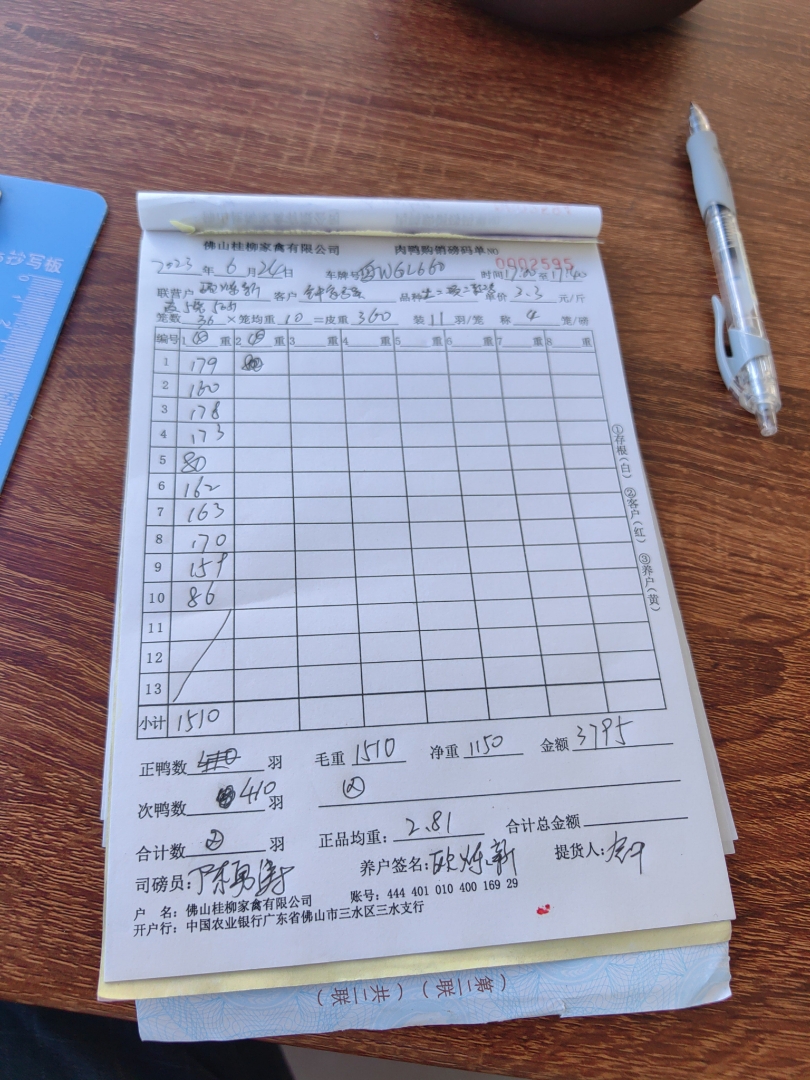 抄写板
佛山桂柳家禽有限公司 肉鸭购销磅码单 NO 0002595
2023 年 6 月 24 日 车牌号 WGL660 时间 至
联营户 客户 品种 单价 3.3 元/斤
笼数 36 ×笼均重 10 =皮重 360 装 11 羽/笼 称 4 笼/磅
编号 1 重 2 重 3 重 4 重 5 重 6 重 7 重 8 重
1 179
2 160
3 178
4 173
5 80
6 162
7 163
8 170
9 159
10 86
11
12
13
小计 1510
正鸭数 410 羽 毛重 1510 净重 1150 金额 3795
次鸭数 410 羽 ②
合计数 ② 羽 正品均重: 2.81 合计总金额
司磅员: 养户签名:欧烁新 提货人:
户 名: 佛山桂柳家禽有限公司 账号: 444 401 010 400 169 29
开户行: 中国农业银行广东省佛山市三水区三水支行
①存根(白) ②客户(红) ③养户(黄)
(第二联)(共二联)